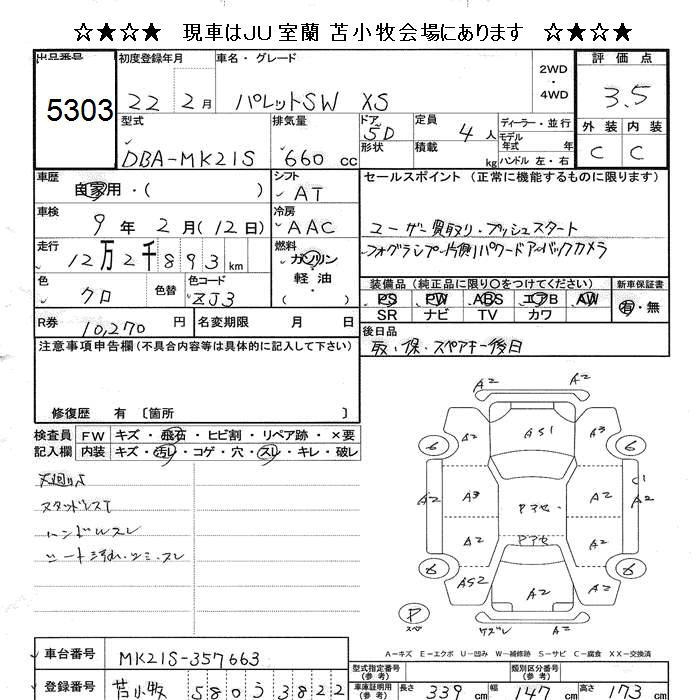 ☆★☆★ 現車はJU室蘭 苫小牧会場にあります ☆★☆★
出品番号 初度登録年月 車名・グレード 2WD・4WD 評価点
5303 22 2月 パレットSW XS 3.5
型式 排気量 ドア 形状 定員 積載 ディーラー・並行 モデル年式 年 ハンドル 左・右 外装 内装
DBA-MK21S 660 cc 5D 4人 kg C C
車歴 自家用・( ) シフト AT セールスポイント (正常に機能するものに限ります)
車検 9年 2月 (12日) 冷房 AAC ユーザー買取り・プッシュスタート
走行 12万2千893km 燃料 ガソリン 軽油・( ) フォグランプー片側パワードアーバックカメラ
色 クロ 色替 色コード ZJ3 装備品 (純正品に限り○をつけてください) 新車保証書
PS PW ABS エアB AW 有・無
SR ナビ TV カワ
R券 10,270円 名変期限 月 日 後日品
取・保・スペアキー後日
注意事項申告欄 (不具合内容等は具体的に記入して下さい)
修復歴 有 〔箇所 〕
検査員 記入欄 FW キズ・飛石・ヒビ割・リペア跡・×要
内装 キズ・汚レ・コゲ・穴・スレ・キレ・破レ
スタッドレス
ハンドルスレ
シート汚れ・シミ・スレ
A2 A2
6 A2 AS1 A3 6
C1
A2 A3 Pアセ A2 A2
A2 Pアセ A2
6 AS2 A2 A2 6
P スペア ケズレ A2
A－キズ E－エクボ U－凹み W－補修跡 S－サビ C－腐食 XX－交換済
車台番号 MK21S-357663 型式指定番号 (参考) 類別区分番号 (参考)
登録番号 苫小牧 580 う 3822 車庫証明用 (参考) 長さ 339cm 幅 147cm 高さ 173cm